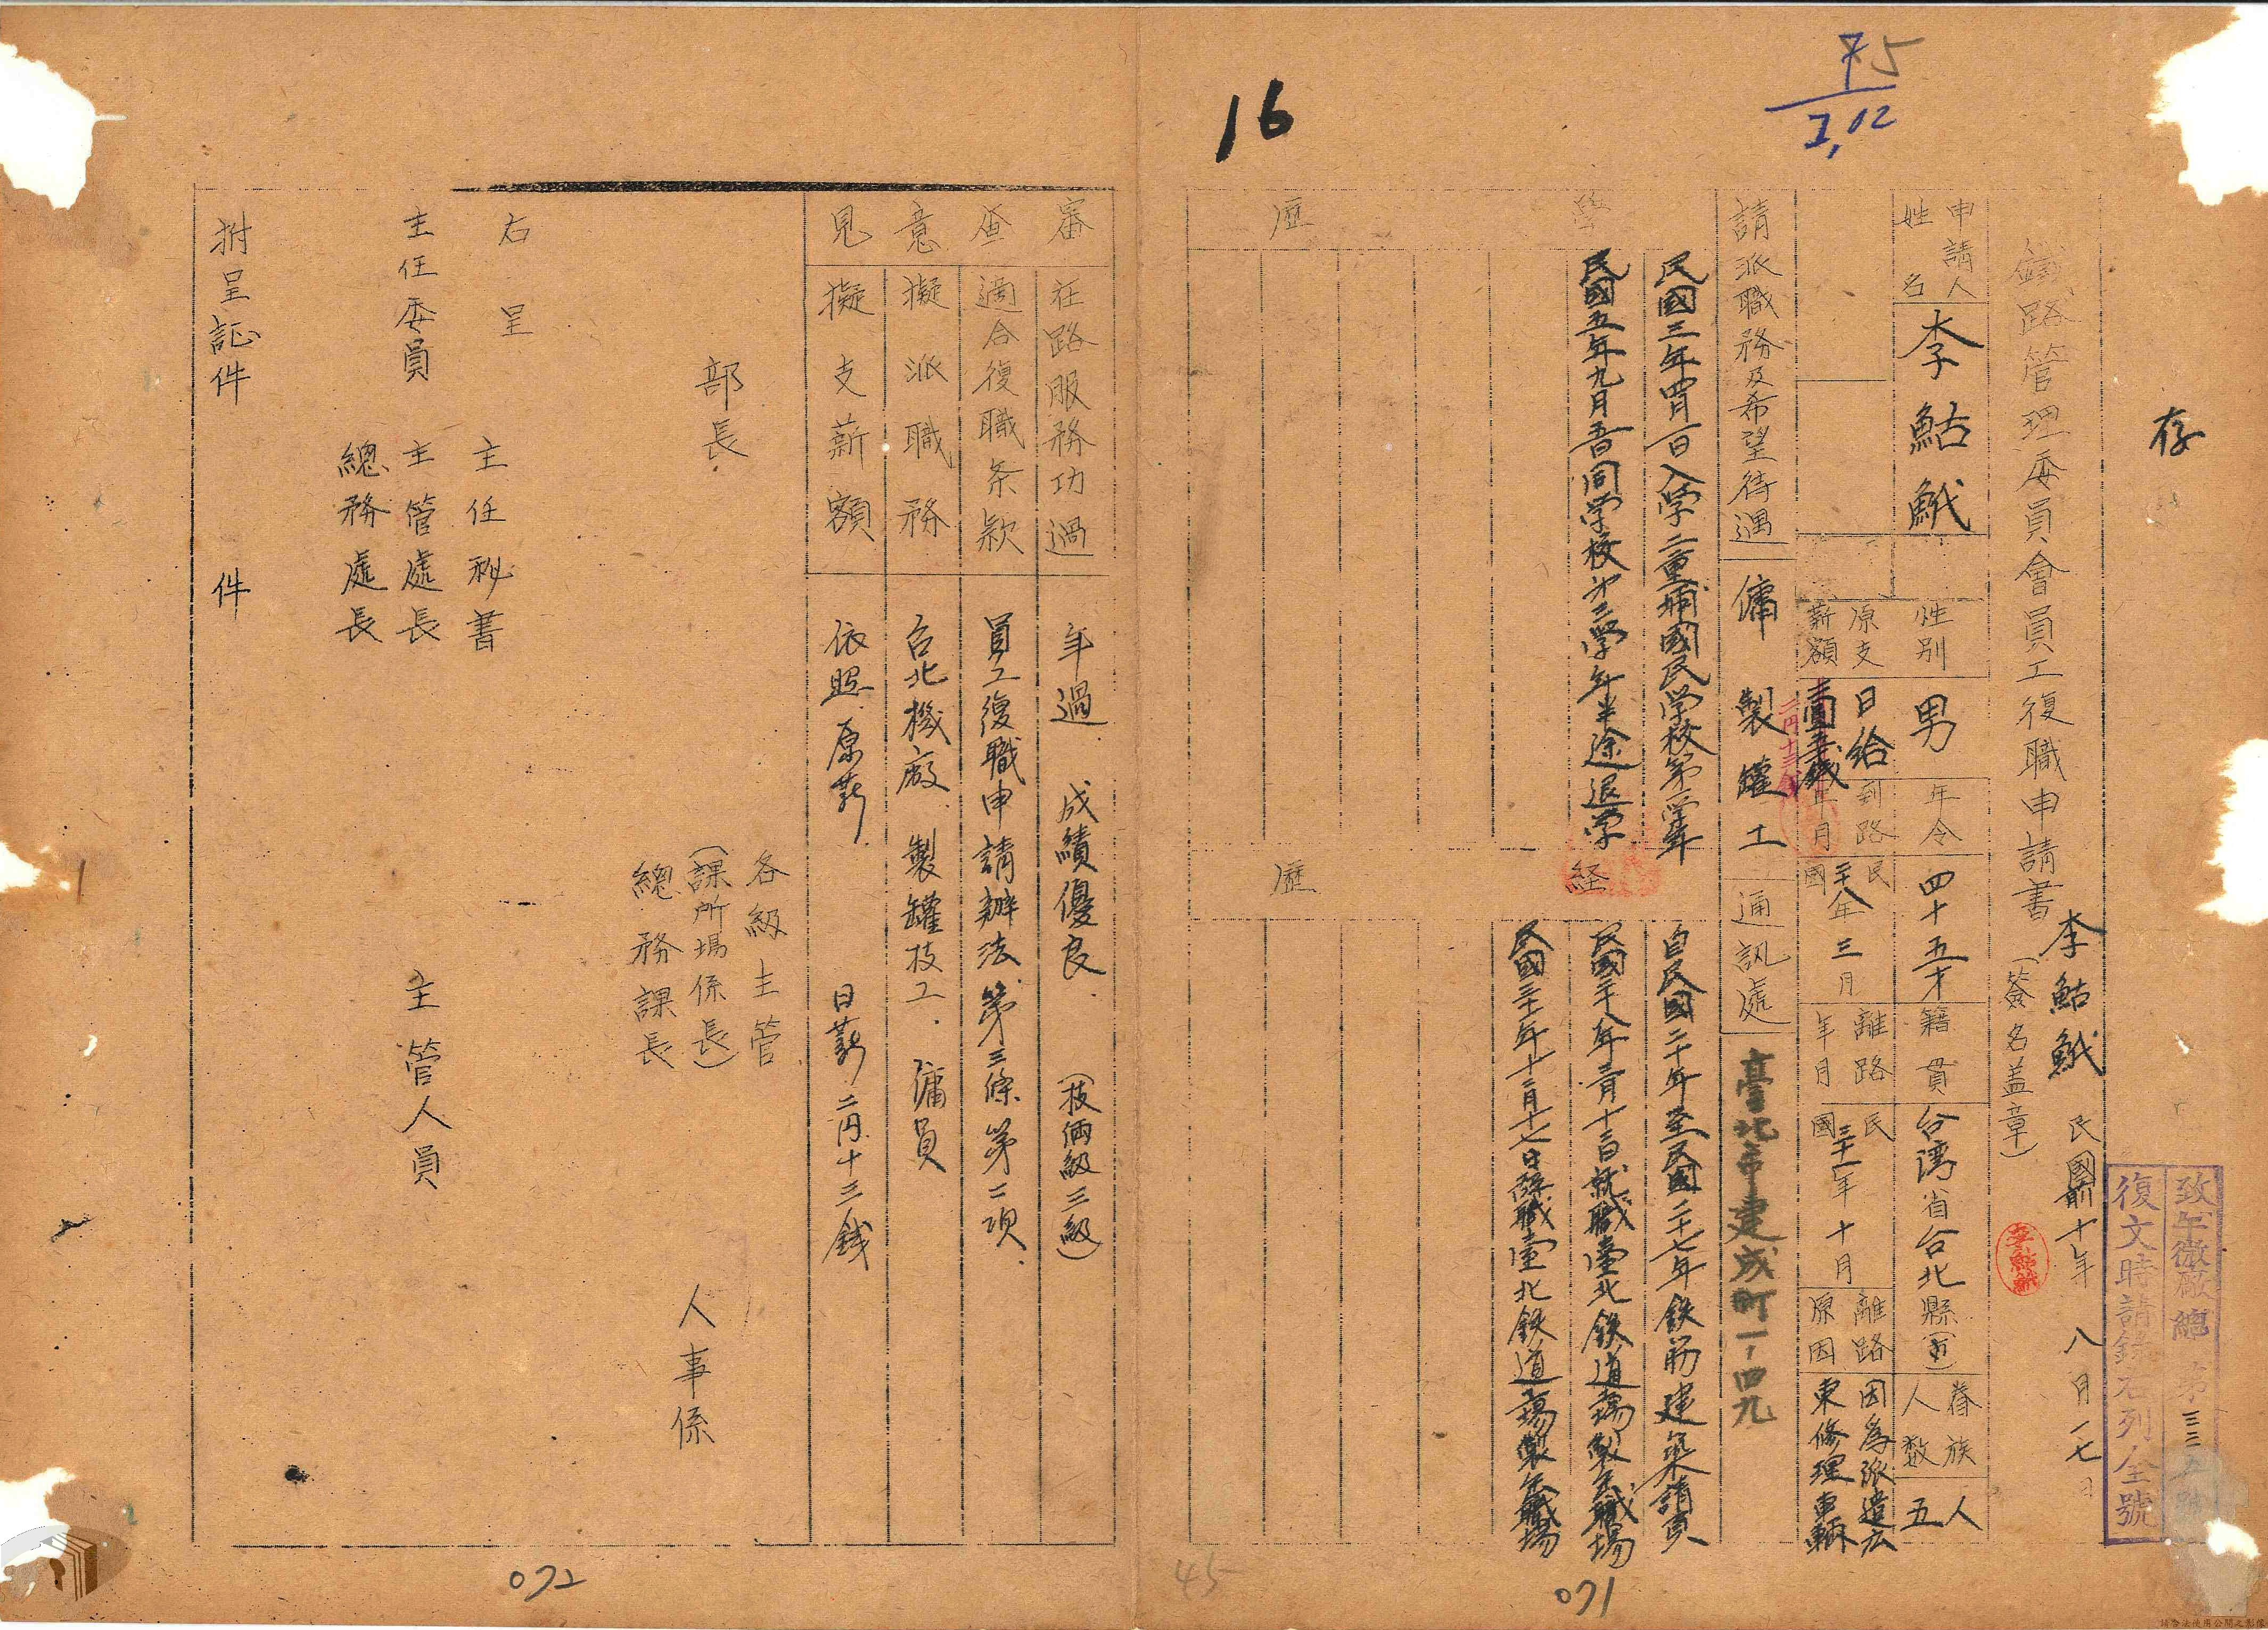 16
75
1,02
存
鐵路管理委員會員工復職申請書
李鮎鯎
(簽名盖章)
民國前十年 八月一七日
復文時請錄右列全號
申請人
姓名
李鮎鯎
性別
男
年令
四十五才
籍貫
台湾省台北縣(市)
眷族
人数
五人
原支
薪額
日給
二円十三
到路
年月
民國二十八年三月
離路
年月
民國三十一年十月
離路
原因
因為派遣広
東修理車輛
請派職務及希望待遇
傭 製罐工
通訊處
臺北市建成町一ノ四九
學
歷
民國三年四月一日入学二重埔國民学校第一学年
民國五年九月五日同学校第三学年半途退学
経
歷
自民國二十年至民國二十七年鉄筋建築請負
民國二十八年三月十三日就職臺北鉄道工場製缶職場
民國三十一年十二月十七日辭職臺北鉄道工場製缶職場
審查意見
在路服務功過
年過.成績優良.(技倆級三級)
適合復職条款
員工復職申請辦法.第三條.第二項.
擬派職務
台北機廠.製罐技工.傭員
擬支薪額
依照原薪.日薪.二円十三銭
各級主管
(課所場係長)
部長
總務課長
人事係
右呈
主任秘書
主任委員
主管處長
總務處長
主管人員
拊呈証件
件
45
071
072